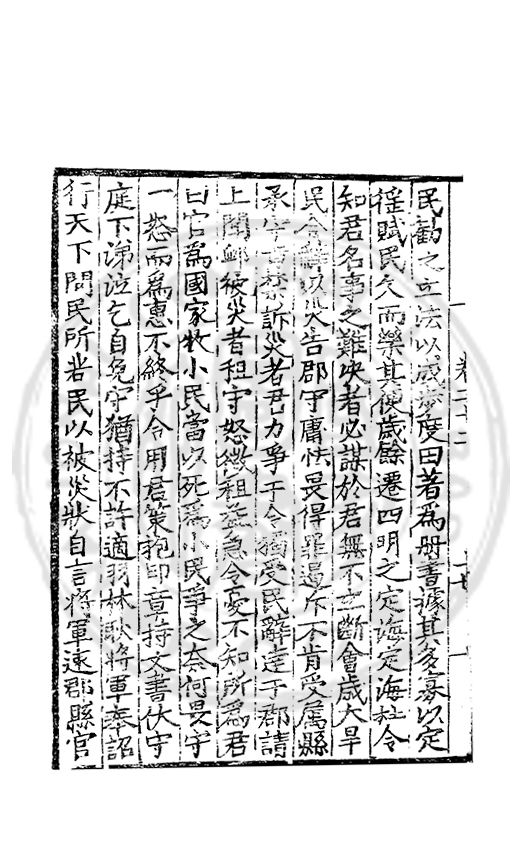 民勸之立法以威㪅度田著爲册書據其多寡以定
徭賦民久而樂其便歲餘遷四明之定海定海杜令
知君名事之難决者必謀於君無不立斷會歲大旱
民合辭以災告郡守庸怯畏得罪過斥不肯受屬縣
承守旨禁訴災者君力爭于令獨受民辭達于郡請
上聞蠲被災者租守怒徵租益急令憂不知所爲君
曰官爲國家牧小民當以死爲小民爭之奈何畏守
一怒而爲惠不終乎令用君策抱印章持文書伏守
庭下涕泣乞自免守猶持不許適羽林耿將軍奉詔
行天下問民所苦民以被災狀自言將軍逮郡縣官
卷二十二